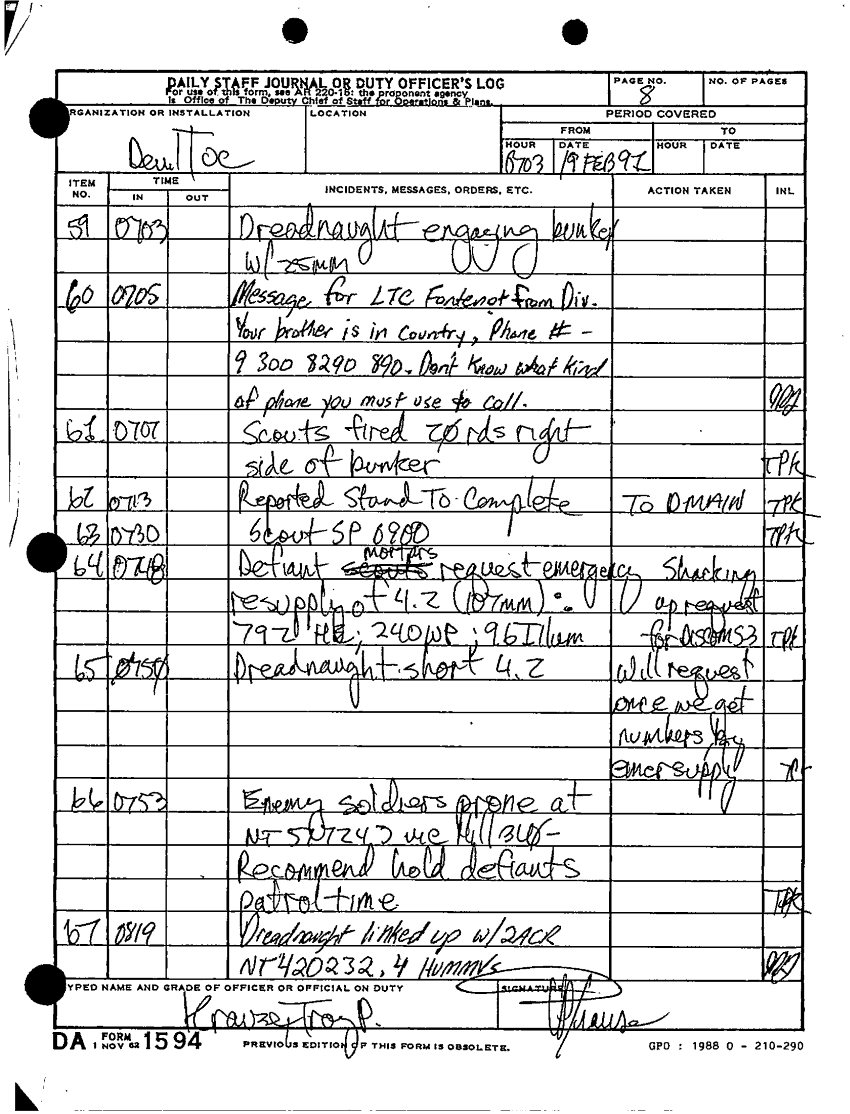 DAILY STAFF JOURNAL OR DUTY OFFICER'S LOG
For use of this form, see AR 220-15; the proponent agency
is Office of The Deputy Chief of Staff for Operations & Plans.
PAGE NO.
8
NO. OF PAGES
RGANIZATION OR INSTALLATION
TOC
LOCATION
PERIOD COVERED
FROM
TO
HOUR
0703
DATE
19 FEB 91
HOUR
DATE
ITEM NO.
TIME
IN
OUT
INCIDENTS, MESSAGES, ORDERS, ETC.
ACTION TAKEN
INL
59 0703 Dreadnaught engaging bunker
w/ 25mm
60 0705 Message for LTC Fontenot from Div.
Your brother is in country, Phone # -
9 300 8290 890. Don't know what kind
of phone you must use to call.
61 0707 Scouts fired 20 rds right
side of bunker TPK
62 0713 Reported Stand To Complete To DMAIN TPK
63 0730 Scout SP 0900 TPK
64 Defiant mortars request emergency
resupply of 4.2 (107mm): up request
792 HE; 240 WP; 96 Illum TPK
65 Dreadnaught short 4.2 Will request
once we get
numbers by
emer supply
66 0753 Enemy soldiers prone at
NT
Recommend hold defiants
patrol time TPK
67 0819 Dreadnaught linked up w/2ACR
NT 420232, 4 HUMMVs
TYPED NAME AND GRADE OF OFFICER OR OFFICIAL ON DUTY
Krause, Troy P.
SIGNATURE
Krause
DA FORM 1 NOV 62 1594
PREVIOUS EDITION OF THIS FORM IS OBSOLETE.
GPO : 1988 O - 210-290